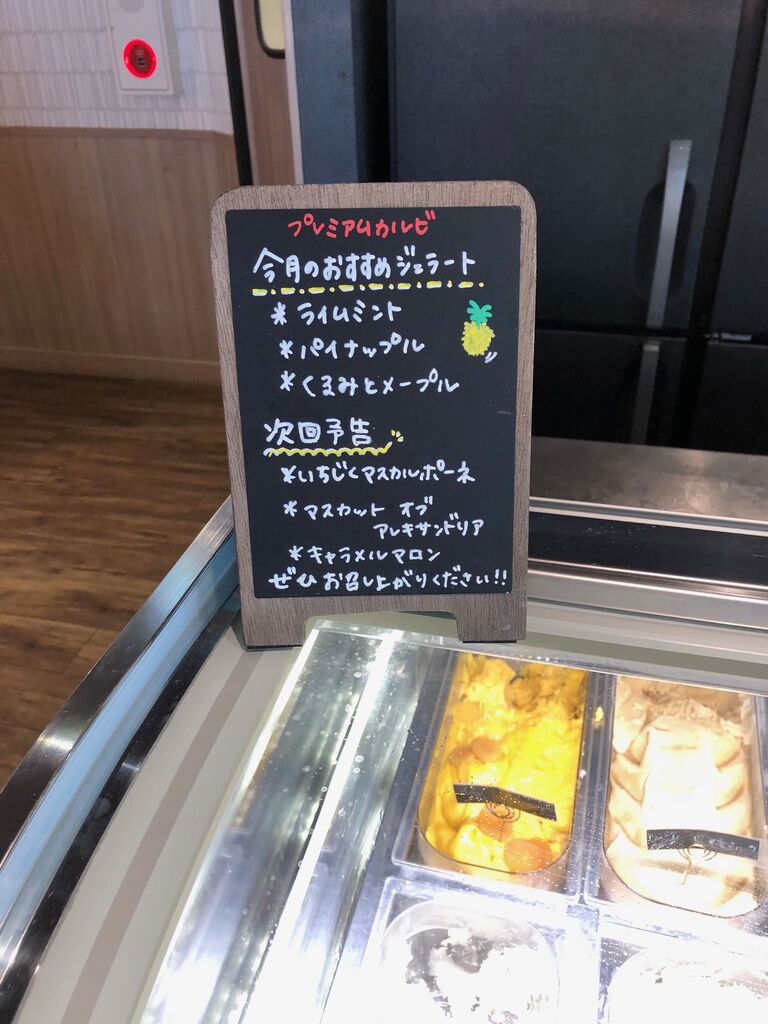 プレミアムカルビ
今月のおすすめジェラート
*ライムミント
*パイナップル
*くるみとメープル
次回予告
*いちじくマスカルポーネ
*マスカット オブ
アレキサンドリア
*キャラメルマロン
ぜひお召し上がりください!!